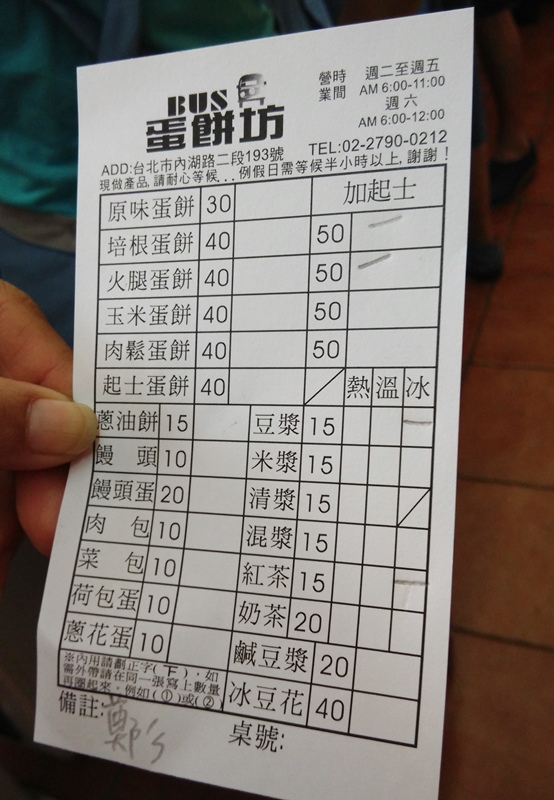 BUS
蛋餅坊
營時 週二至週五
業間 AM 6:00-11:00
週六
AM 6:00-12:00
ADD:台北市內湖路二段193號 TEL:02-2790-0212
現做產品,請耐心等候...例假日需等候半小時以上,謝謝!
原味蛋餅 30 加起士
培根蛋餅 40 50 一
火腿蛋餅 40 50 一
玉米蛋餅 40 50
肉鬆蛋餅 40 50
起士蛋餅 40 熱 溫 冰
蔥油餅 15 豆漿 15 一
饅頭 10 米漿 15
饅頭蛋 20 清漿 15
肉包 10 混漿 15
菜包 10 紅茶 15 一
荷包蛋 10 奶茶 20
蔥花蛋 10 鹹豆漿 20
※內用請劃正字(下),如
需外帶請在同一張寫上數量
再圈起來,例如(①)或(②)
冰豆花 40
備註: 鄭's 桌號: